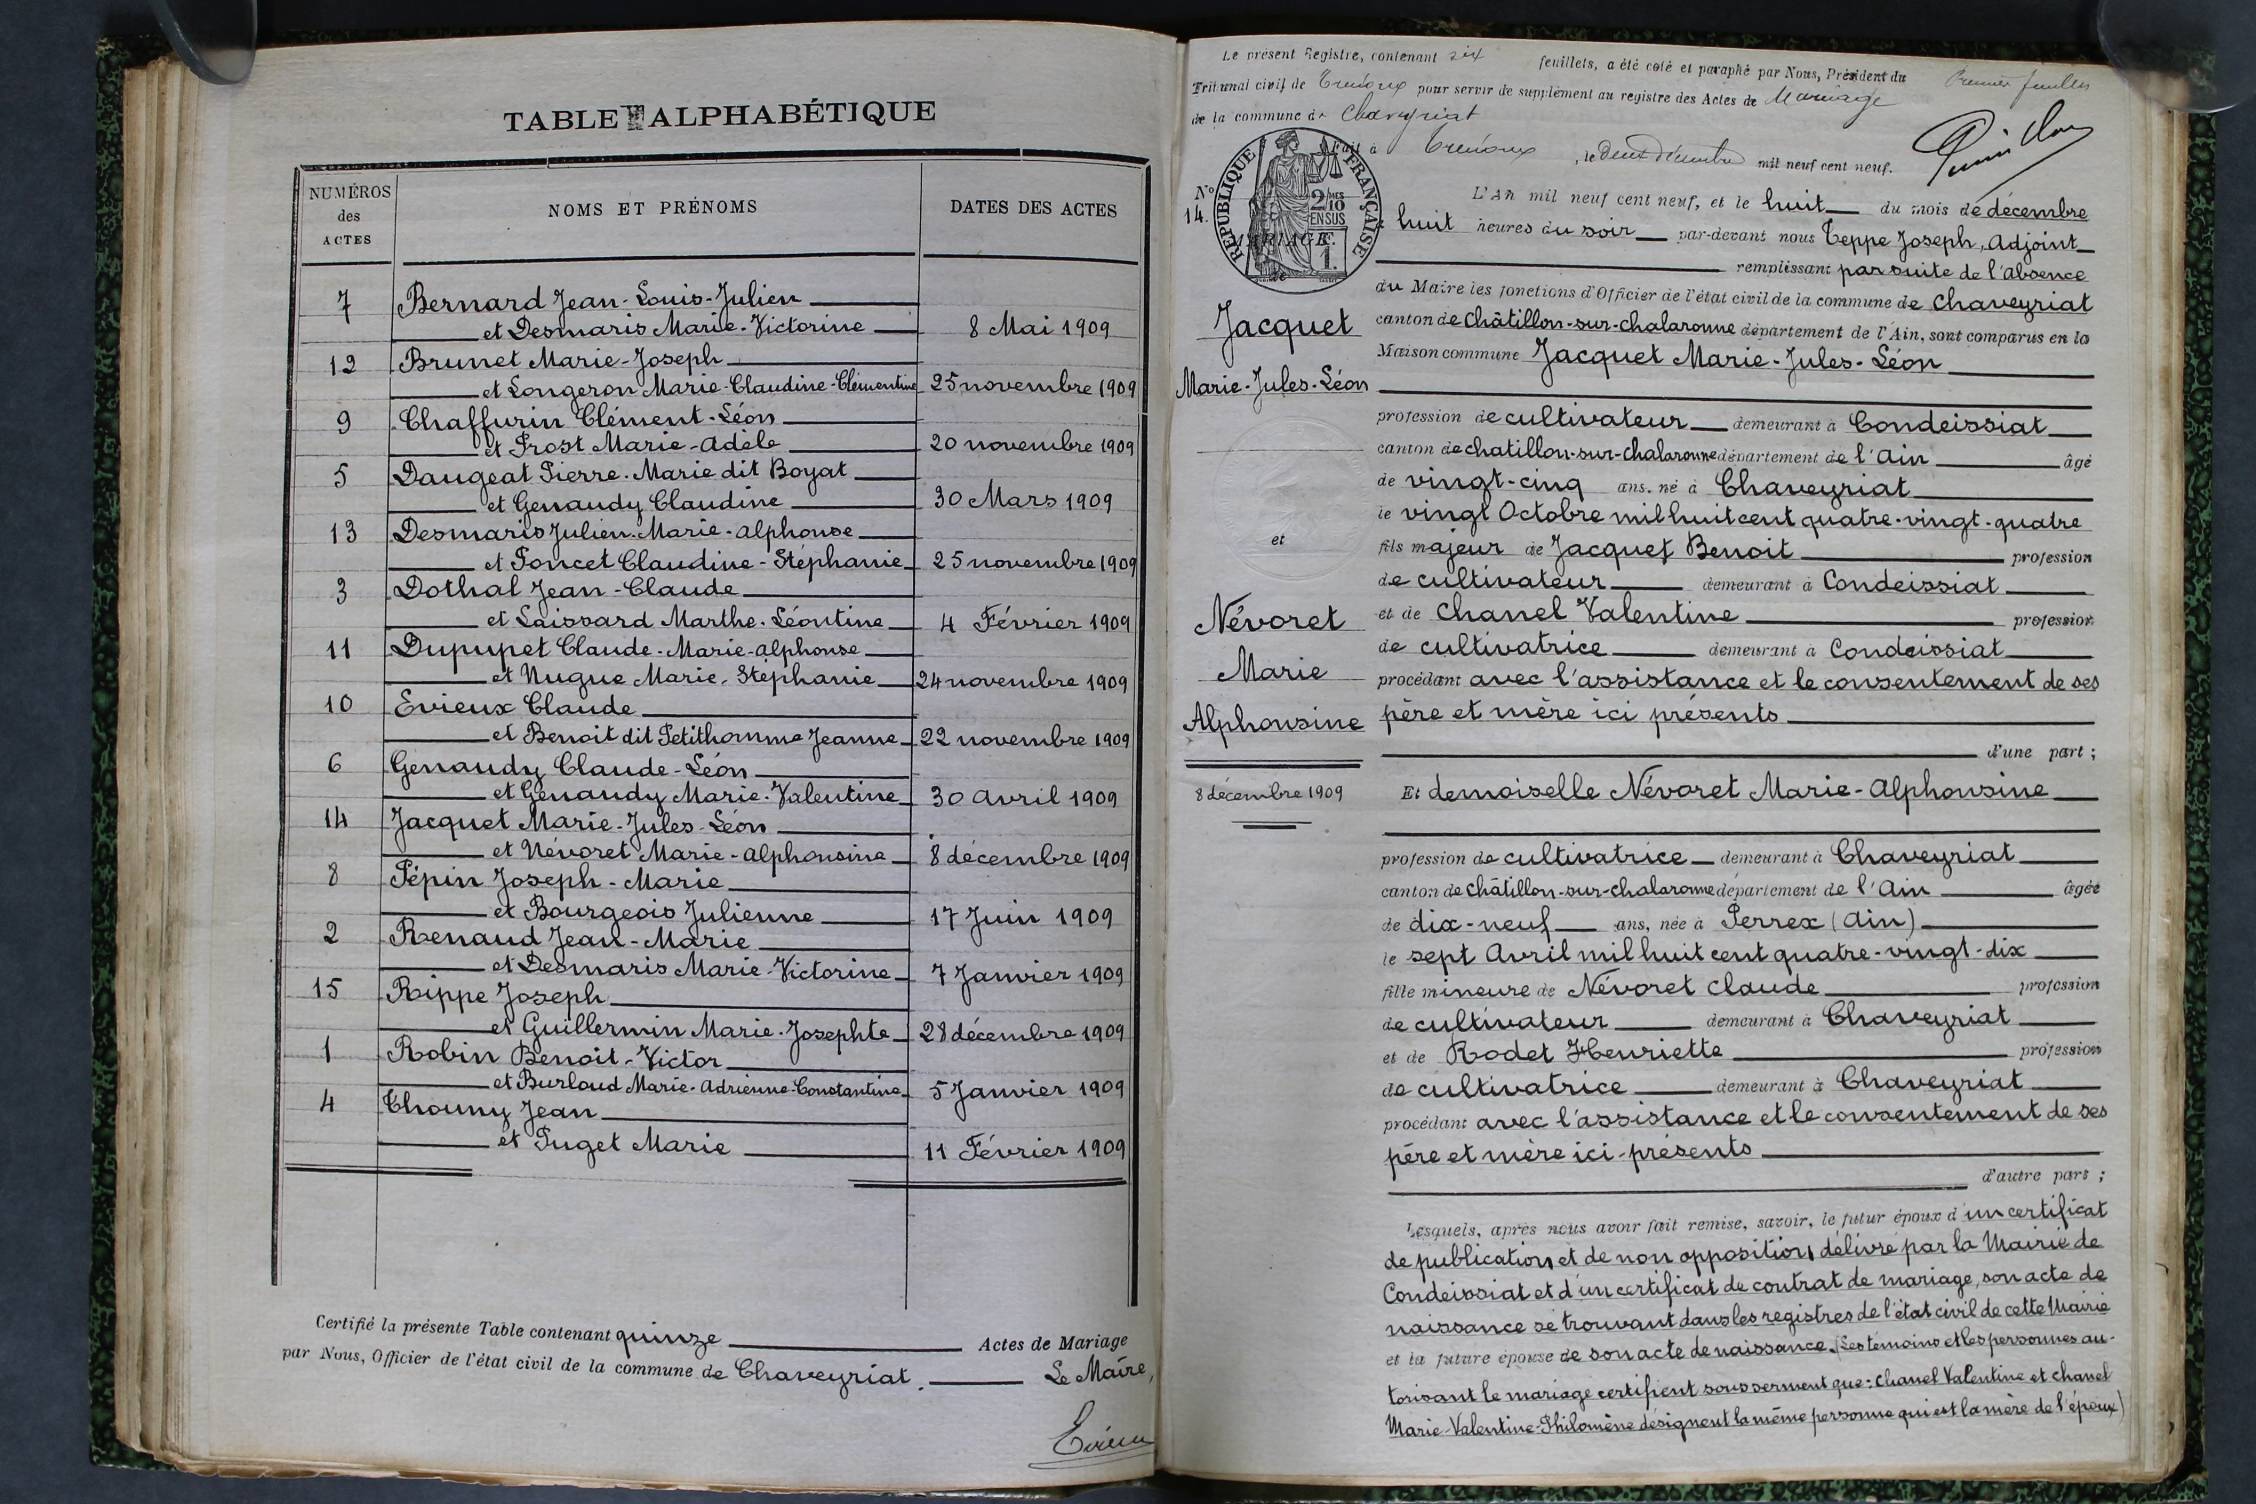 TABLE ALPHABÉTIQUE
NUMÉROS des ACTES
NOMS ET PRÉNOMS
DATES DES ACTES
7 Bernard Jean-Louis-Julien
et Desmaris Marie-Victorine 8 Mai 1909
12 Brunet Marie-Joseph
et Longeron Marie-Claudine-Clémentine 25 novembre 1909
9 Chaffurin Clément-Léon
et Prost Marie-Adèle 20 novembre 1909
5 Daugeat Pierre-Marie dit Boyat
et Genaudy Claudine 30 Mars 1909
13 Desmaris Julien-Marie-Alphonse
et Poncet Claudine-Stéphanie 25 novembre 1909
3 Dothal Jean-Claude
et Laissard Marthe-Léontine 4 Février 1909
11 Dupupet Claude-Marie-Alphonse
et Nugue Marie-Stéphanie 24 novembre 1909
10 Evieux Claude
et Benoit dit Petithomme Jeanne 22 novembre 1909
6 Genaudy Claude-Léon
et Genaudy Marie-Valentine 30 Avril 1909
14 Jacquet Marie-Jules-Léon
et Névoret Marie-Alphonsine 8 décembre 1909
8 Pépin Joseph-Marie
et Bourgeois Julienne 17 Juin 1909
2 Renaud Jean-Marie
et Desmaris Marie-Victorine 7 Janvier 1909
15 Rippe Joseph
et Guillermin Marie-Josephte 28 décembre 1909
1 Robin Benoit-Victor
et Burlaud Marie-Adrienne-Constantine 5 Janvier 1909
4 Thouny Jean
et Puget Marie 11 Février 1909
Certifié la présente Table contenant quinze Actes de Mariage
par Nous, Officier de l'état civil de la commune de Chaveyriat. Le Maire,
Evieux
Le présent Registre, contenant six feuillets, a été coté et paraphé par Nous, Président du
Tribunal civil de Trévoux pour servir de supplément au registre des Actes de Mariage
de la commune de Chaveyriat
Premier feuillet
Fait à Trévoux, le deux décembre mil neuf cent neuf.
RÉPUBLIQUE FRANÇAISE
2/10 EN SUS
1F.
N° 14.
MARIAGE
de
Jacquet
Marie-Jules-Léon
et
Névoret
Marie
Alphonsine
8 décembre 1909
L'an mil neuf cent neuf, et le huit du mois de décembre
huit heures du soir par-devant nous Teppe Joseph, Adjoint
remplissant par suite de l'absence
du Maire les fonctions d'Officier de l'état civil de la commune de Chaveyriat
canton de Châtillon-sur-Chalaronne département de l'Ain, sont comparus en la
Maison commune Jacquet Marie-Jules-Léon
profession de cultivateur demeurant à Condeissiat
canton de Chatillon-sur-Chalaronne département de l'Ain âgé
de vingt-cinq ans, né à Chaveyriat
le vingt Octobre mil huit cent quatre-vingt-quatre
fils majeur de Jacquet Benoit profession
de cultivateur demeurant à Condeissiat
et de Chanel Valentine profession
de cultivatrice demeurant à Condeissiat
procédant avec l'assistance et le consentement de ses
père et mère ici présents
d'une part ;
Et demoiselle Névoret Marie-Alphonsine
profession de cultivatrice demeurant à Chaveyriat
canton de Châtillon-sur-Chalaronne département de l'Ain âgée
de dix-neuf ans, née à Perrex (Ain)
le sept Avril mil huit cent quatre-vingt-dix
fille mineure de Névoret Claude profession
de cultivateur demeurant à Chaveyriat
et de Rodet Henriette profession
de cultivatrice demeurant à Chaveyriat
procédant avec l'assistance et le consentement de ses
père et mère ici présents
d'autre part ;
Lesquels, après nous avoir fait remise, savoir, le futur époux d'un certificat
de publication et de non opposition délivré par la Mairie de
Condeissiat et d'un certificat de contrat de mariage, son acte de
naissance se trouvant dans les registres de l'état civil de cette Mairie
et la future épouse de son acte de naissance. (Les témoins et les personnes au-
torisant le mariage certifient sous serment que : Chanel Valentine et Chanel
Marie-Valentine-Philomène désignent la même personne qui est la mère de l'époux)